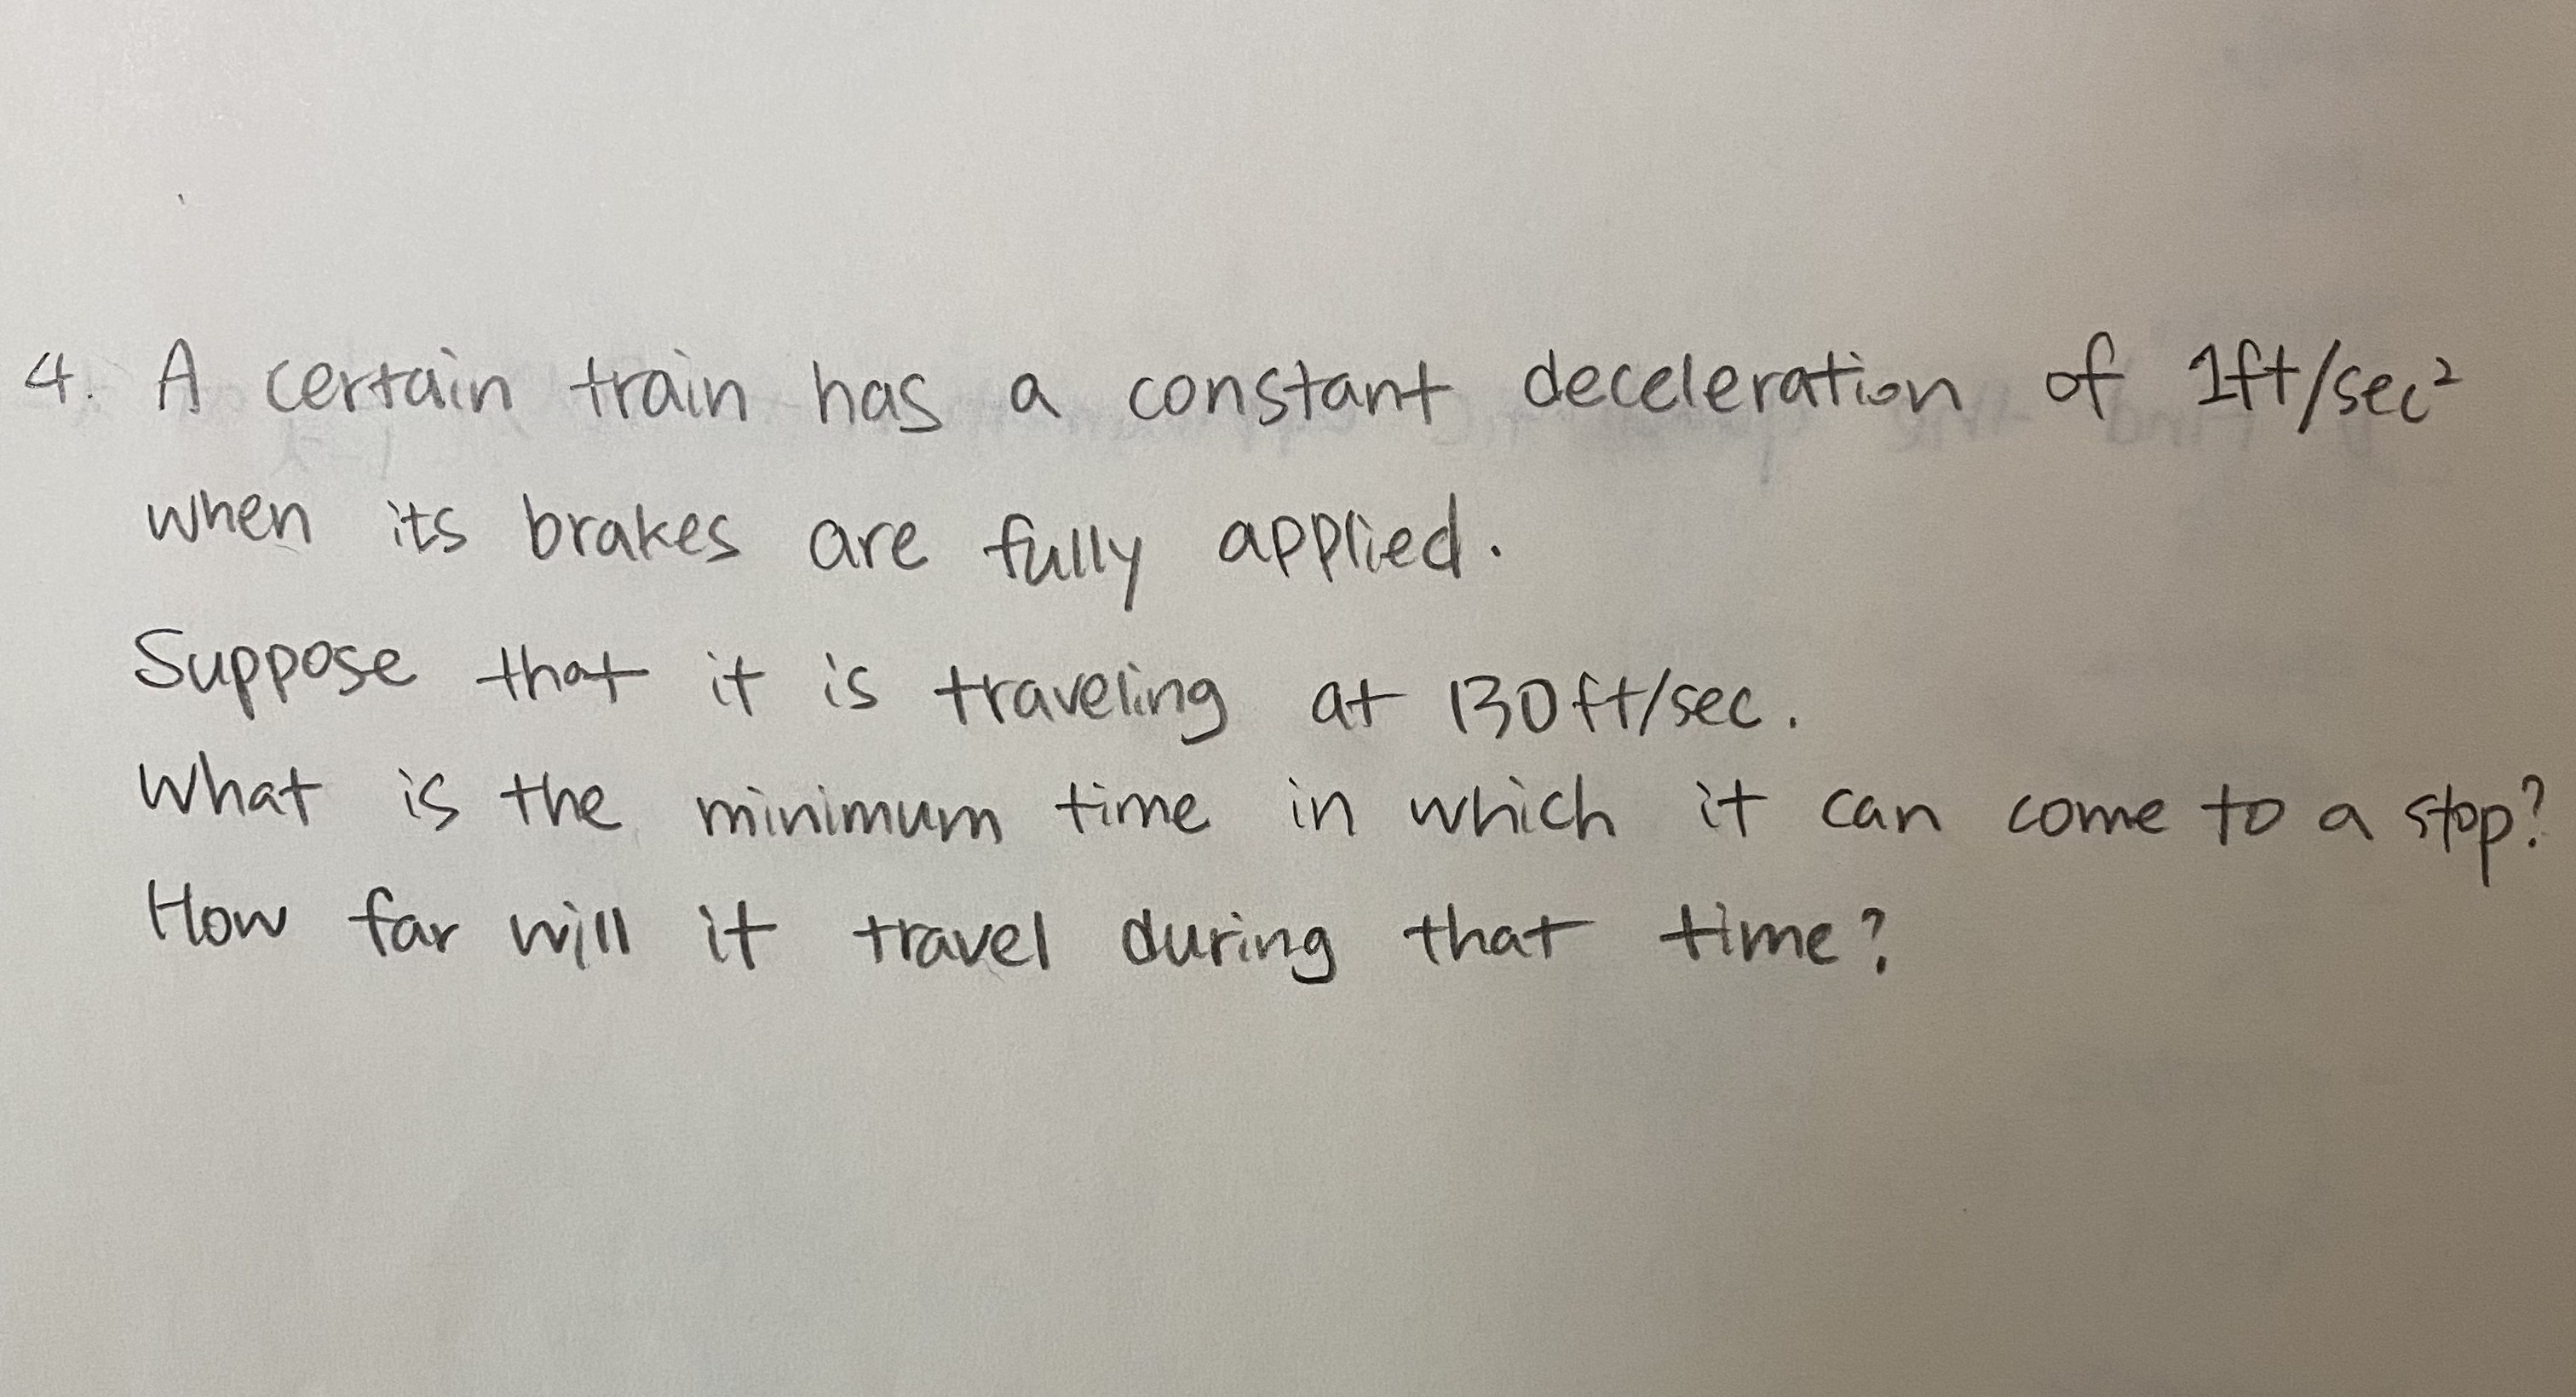 4. A certain train has a constant deceleration of 1ft/sec²
when its brakes are fully applied.
Suppose that it is traveling at 130ft/sec.
What is the minimum time in which it can come to a stop?
How far will it travel during that time?